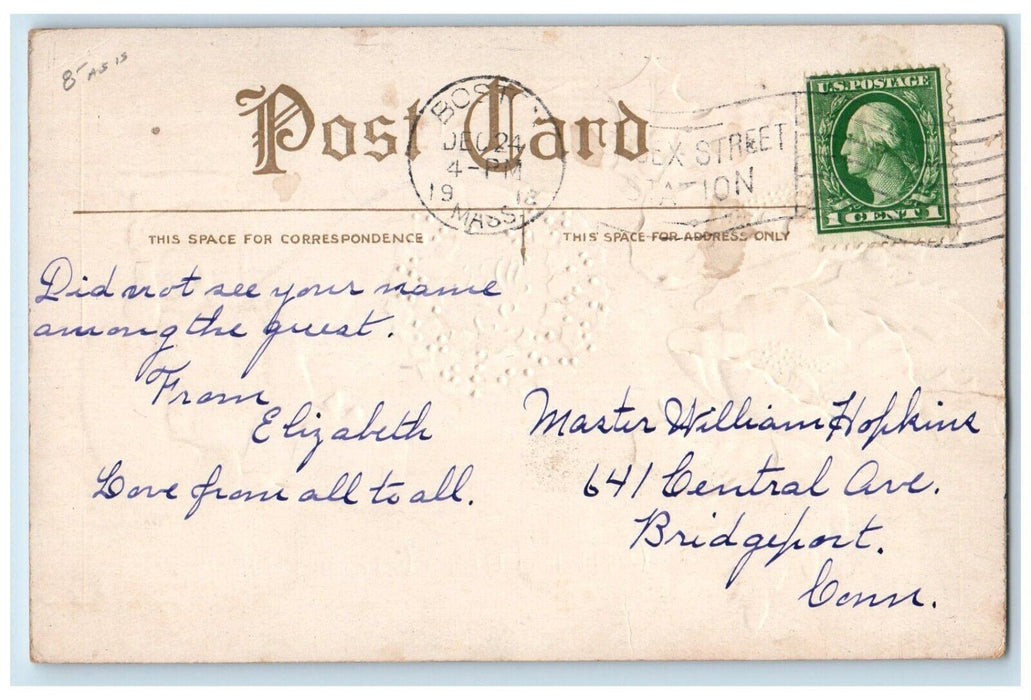 8- AS IS
Post Card
U.S. POSTAGE
1 CENT 1
DEC 24
4-PM
19
MASS.
STREET
STATION
THIS SPACE FOR CORRESPONDENCE
THIS SPACE FOR ADDRESS ONLY
Did not see your name
among the guest.
From
Elizabeth
Love from all to all.
Master William Hopkins
641 Central Ave.
Bridgeport.
Conn.